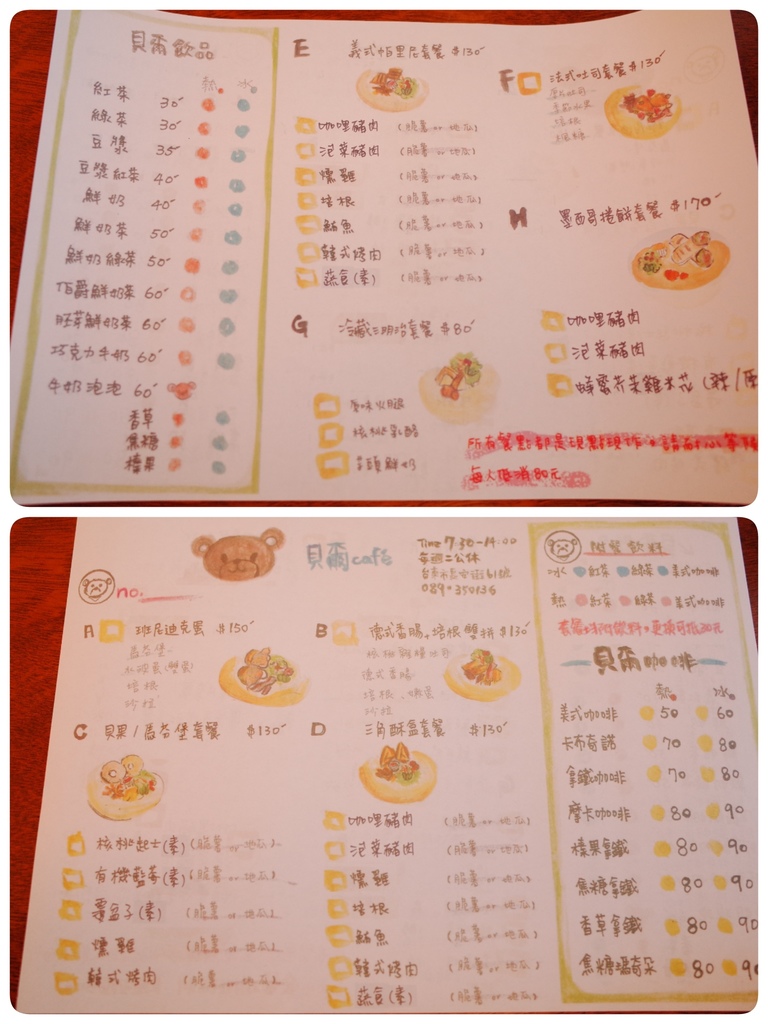 貝爾飲品
熱 冰
紅茶 30
綠茶 30
豆漿 35
豆漿紅茶 40
鮮奶 40
鮮奶茶 50
鮮奶綠茶 50
伯爵鮮奶茶 60
胚芽鮮奶茶 60
巧克力牛奶 60
牛奶泡泡 60
香草
焦糖
榛果
E 義式帕里尼套餐 $130
咖哩豬肉 (脆薯 or 地瓜)
泡菜豬肉 (脆薯 or 地瓜)
燻雞 (脆薯 or 地瓜)
培根 (脆薯 or 地瓜)
鮪魚 (脆薯 or 地瓜)
韓式烤肉 (脆薯 or 地瓜)
蔬食(素) (脆薯 or 地瓜)
G 冷藏三明治套餐 $80
原味火腿
核桃乳酪
芋頭鮮奶
F 法式吐司套餐 $130
培根
H 墨西哥捲餅套餐 $170
咖哩豬肉
泡菜豬肉
蜂蜜芥茉雞米花 (辣/原
所有餐點都是現點現作。請耐心等候
每人低消80元
no.
貝爾café
Time 7:30-14:00
每週二公休
089-350136
A 班尼迪克蛋 $150
培根
沙拉
B 德式香腸+培根雙拼 $130
德式香腸
沙拉
C 貝果/馬芬堡套餐 $130
核桃起士(素) (脆薯 or 地瓜)
有機藍莓(素) (脆薯 or 地瓜)
覆盆子(素) (脆薯 or 地瓜)
燻雞 (脆薯 or 地瓜)
韓式烤肉 (脆薯 or 地瓜)
D 三角酥盒套餐 $130
咖哩豬肉 (脆薯 or 地瓜)
泡菜豬肉 (脆薯 or 地瓜)
燻雞 (脆薯 or 地瓜)
培根 (脆薯 or 地瓜)
鮪魚 (脆薯 or 地瓜)
韓式烤肉 (脆薯 or 地瓜)
蔬食(素) (脆薯 or 地瓜)
附餐飲料
冰 紅茶 綠茶 美式咖啡
熱 紅茶 綠茶 美式咖啡
套餐均附飲料。更換可抵30元
貝爾咖啡
熱 冰
美式咖啡 50 60
卡布奇諾 70 80
拿鐵咖啡 70 80
摩卡咖啡 80 90
榛果拿鐵 80 90
焦糖拿鐵 80 90
香草拿鐵 80 90
焦糖瑪奇朵 80 90